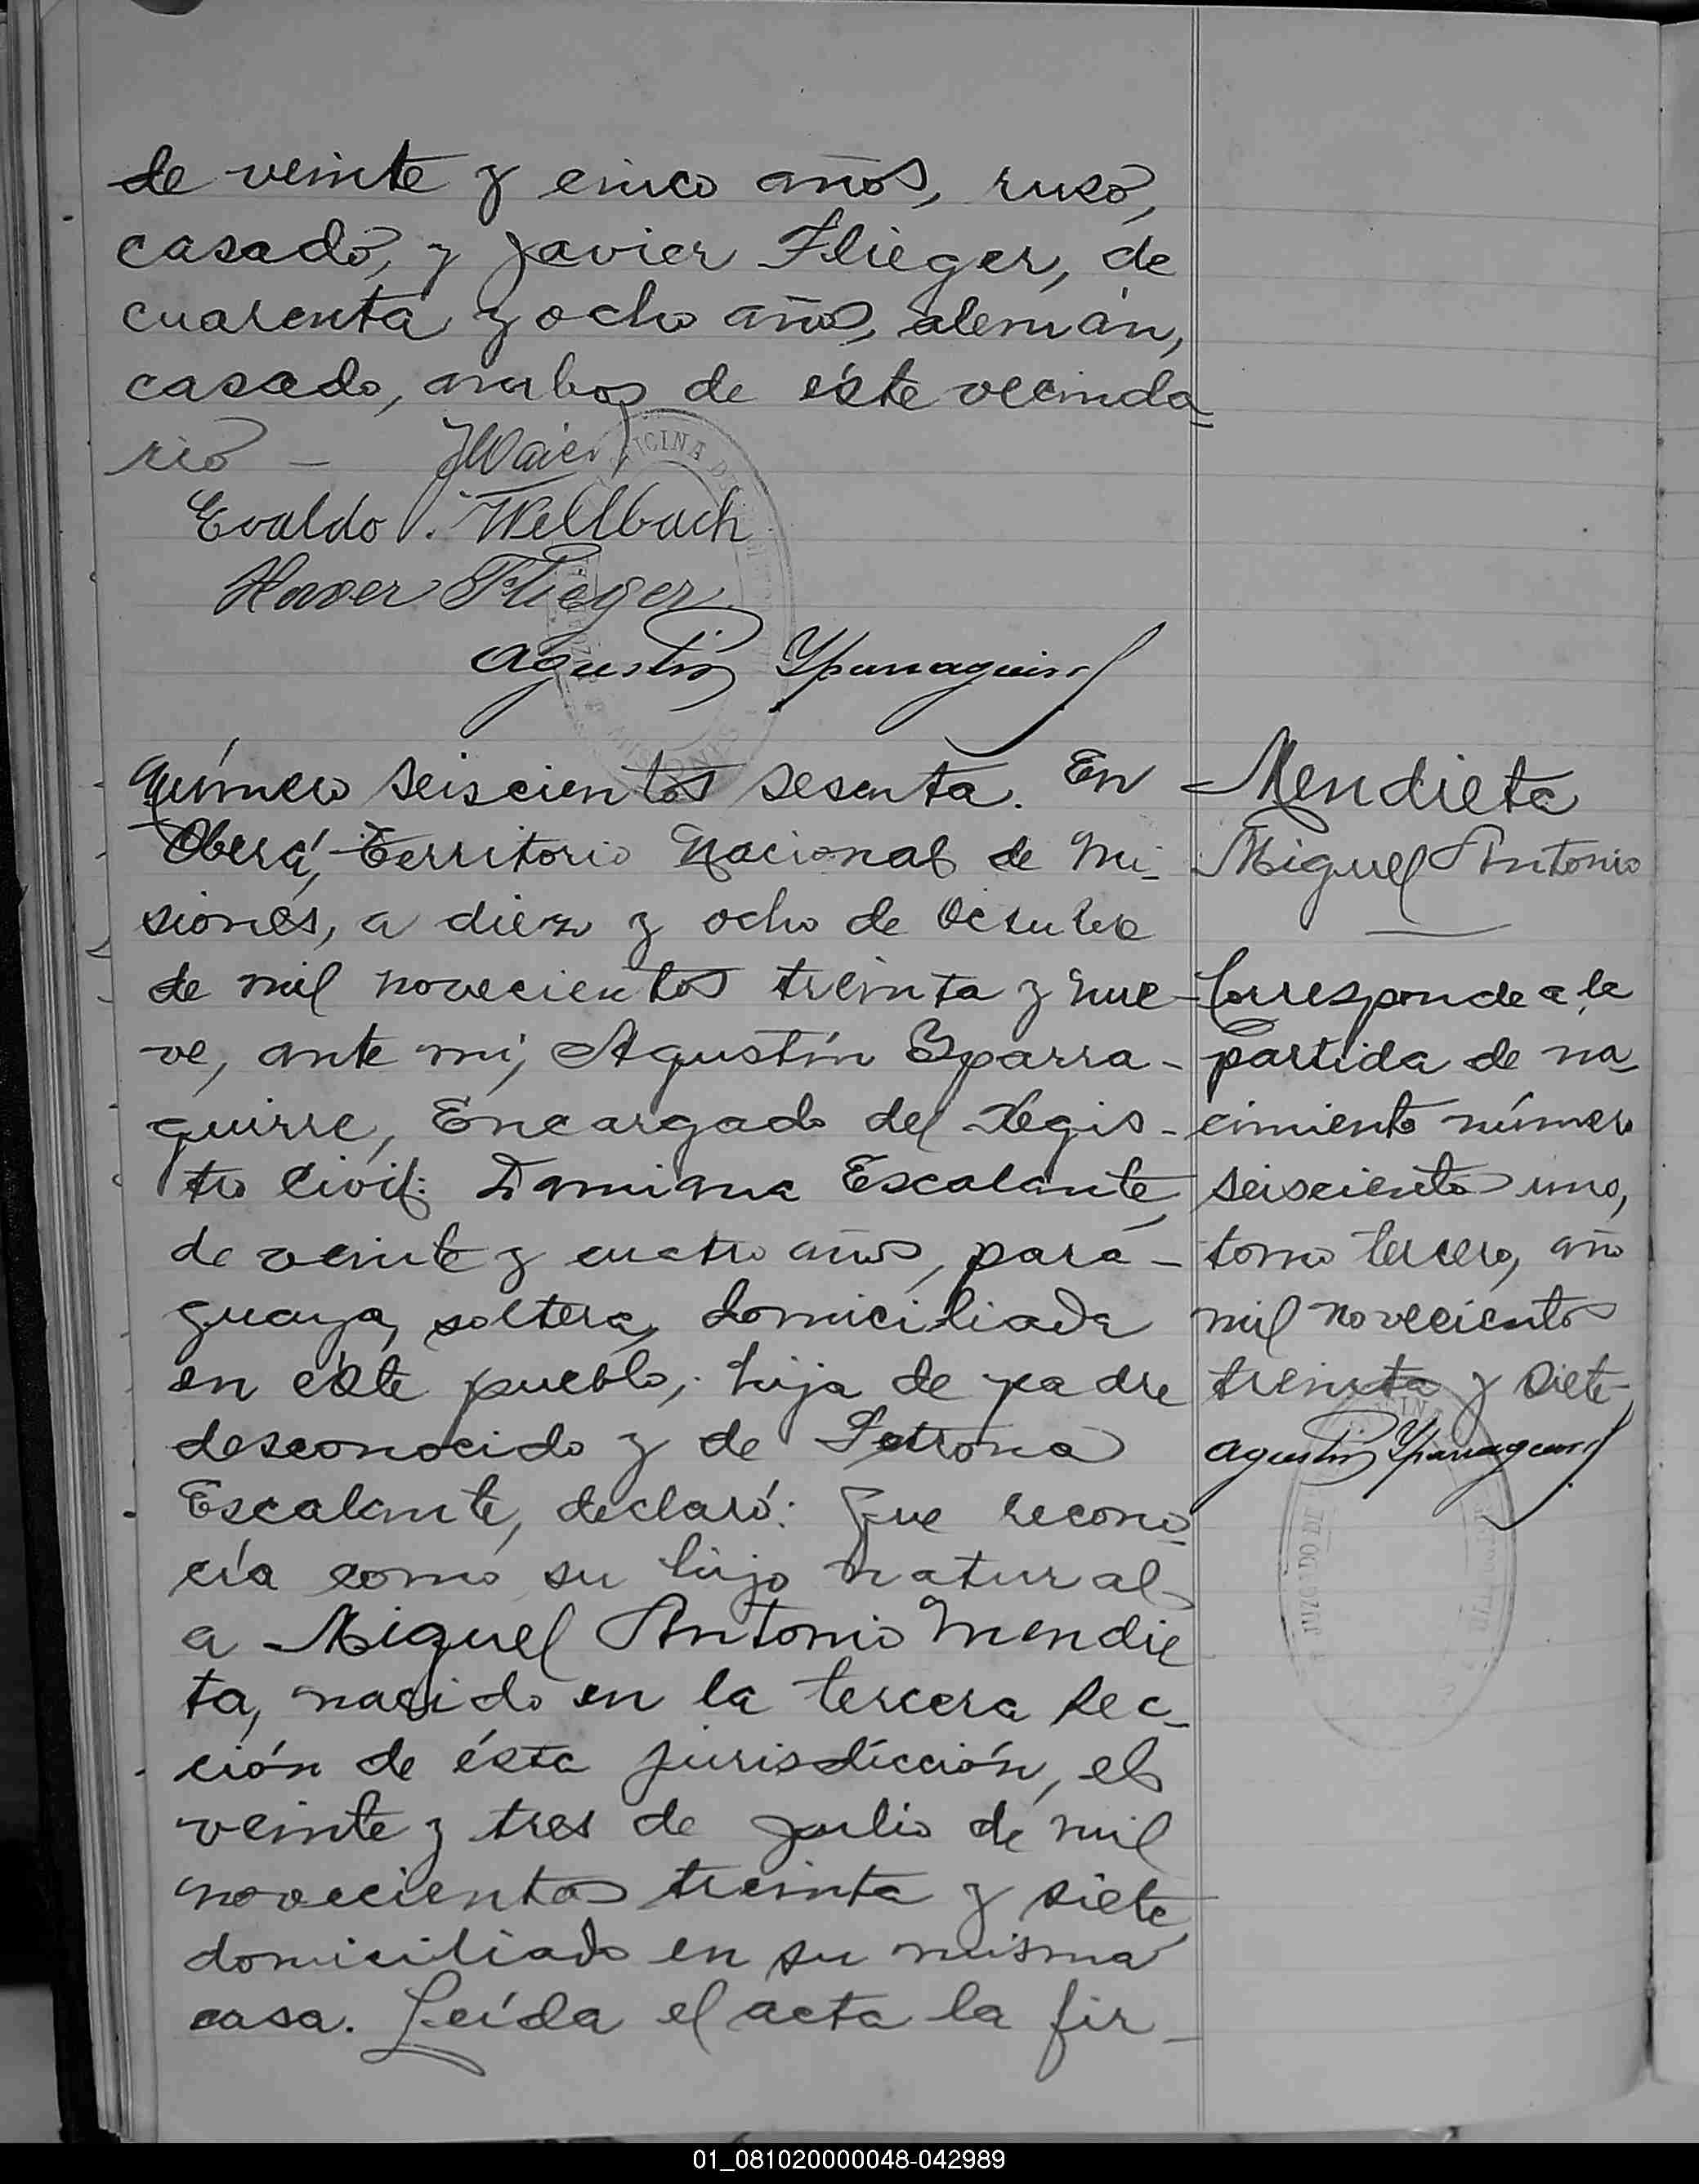 de veinte y cinco años, ruso,
casado, y Javier Flieger, de
cuarenta y ocho años, alemán,
casado, ambos de éste vecinda-
rio —
Evaldo Wellbach
Xaver Flieger
Agustín Yparraguirre
Número seiscientos sesenta. En
Oberá, Territorio Nacional de Mi-
siones, a diez y ocho de Octubre
de mil novecientos treinta y nue-
ve, ante mi, Agustín Yparra-
guirre, Encargado del Regis-
tro Civil: Damiana Escalante,
de veinte y cuatro años, para-
guaya, soltera, domiciliada
en éste pueblo, hija de padre
desconocido y de Petrona
Escalante, declaró: Que recono-
cía como su hijo natural
a Miguel Antonio Mendie
ta, nacido en la tercera Sec-
ción de ésta jurisdicción, el
veinte y tres de Julio de mil
novecientos treinta y siete,
domiciliado en su misma
casa. Leída el acta la fir-
Mendieta
Miguel Antonio
Corresponde a la
partida de na-
cimiento número
seiscientos uno,
tomo tercero, año
mil novecientos
treinta y siete
Agustín Yparraguirre
01_081020000048-042989